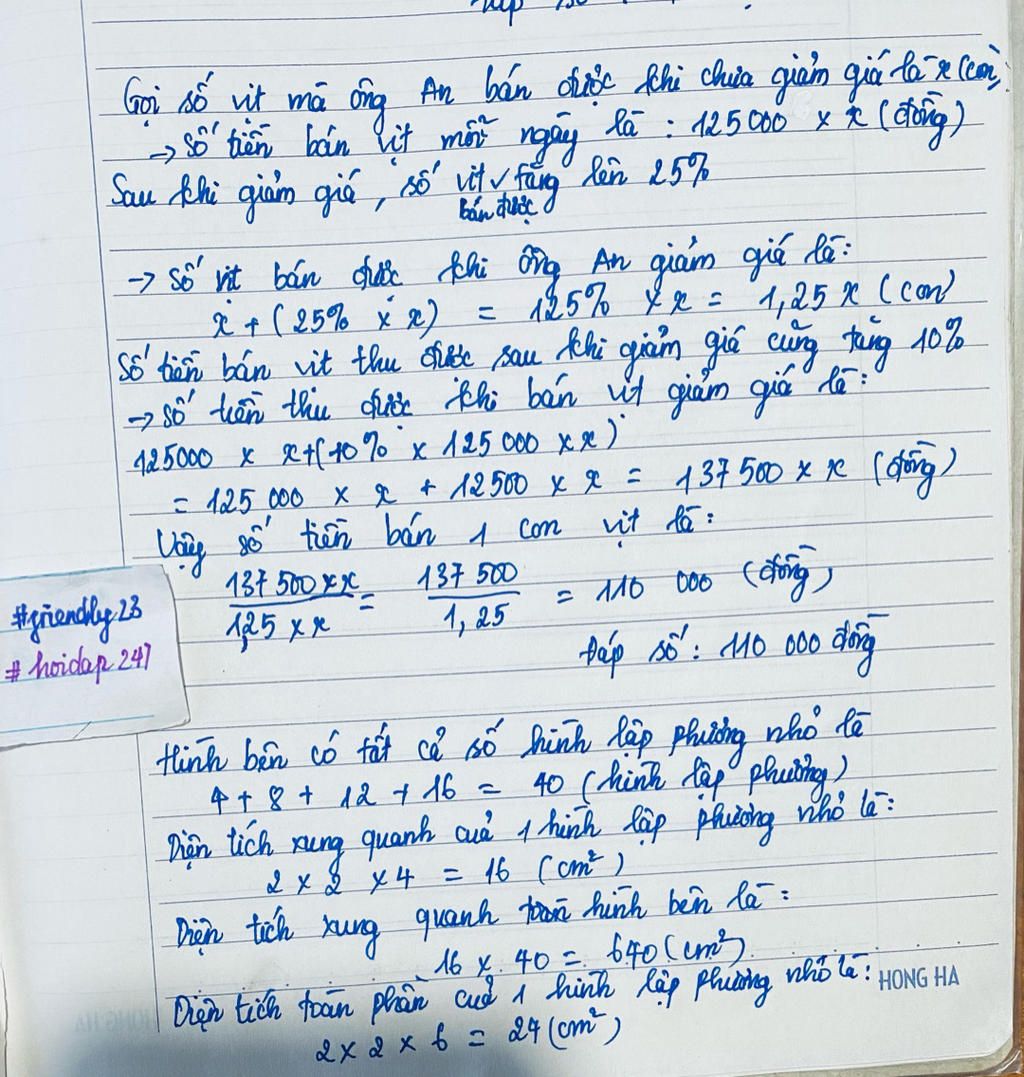 Gọi số vịt mà ông An bán được khi chưa giảm giá là x (con)
→ Số tiền bán vịt mỗi ngày là : 125000 x x (đồng)
Sau khi giảm giá, số vịt ✓ tăng lên 25%
bán được
→ Số vịt bán được khi ông An giảm giá là:
x + (25% x x) = 125% x x = 1,25 x (con)
Số tiền bán vịt thu được sau khi giảm giá cũng tăng 10%
→ Số tiền thu được khi bán vịt giảm giá là:
125000 x x + (10% x 125 000 x x)
= 125 000 x x + 12500 x x = 137 500 x x (đồng)
Vậy số tiền bán 1 con vịt là:
137 500 x x / 1,25 x x = 137 500 / 1,25 = 110 000 (đồng)
Đáp số : 110 000 đồng
#friendly23
# hoidap247
Hình bên có tất cả số hình lập phương nhỏ là
4 + 8 + 12 + 16 = 40 (hình lập phương)
Diện tích xung quanh của 1 hình lập phương nhỏ là:
2 x 2 x 4 = 16 (cm²)
Diện tích xung quanh hình bên là:
16 x 40 = 640 (cm²)
Diện tích toàn phần của 1 hình lập phương nhỏ là:
HONG HA
2 x 2 x 6 = 24 (cm²)